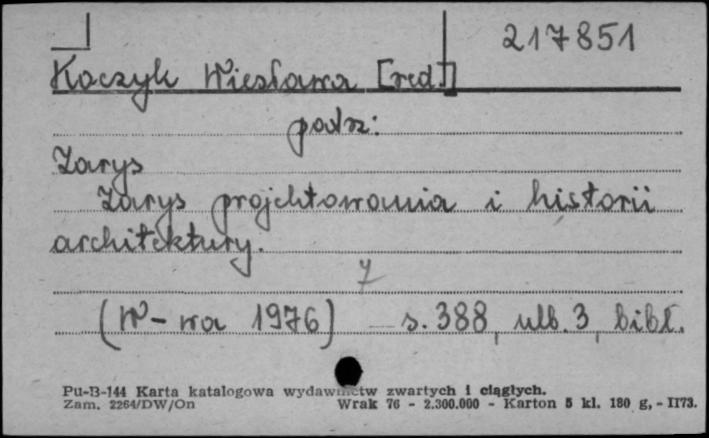 217851
Koczyk Wiesława [red.]
patrz:
Zarys
Zarys projektowania i historii
architektury.
7
(W-wa 1976) s. 388, nlb. 3, bibl.
Pu-B-144 Karta katalogowa wydawnictw zwartych i ciągłych.
Zam. 2264/DW/On Wrak 76 - 2.300.000 - Karton 5 kl. 180 g, - II73.